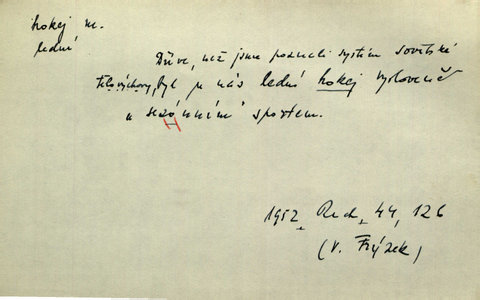 hokej m.
lední
Dříve, než jsme poznali systém sovětské
tělovýchovy, byl u nás lední hokej vysloveně
„sezónním" sportem.
H
1952, Red, 44, 126
(V. Frýzek)